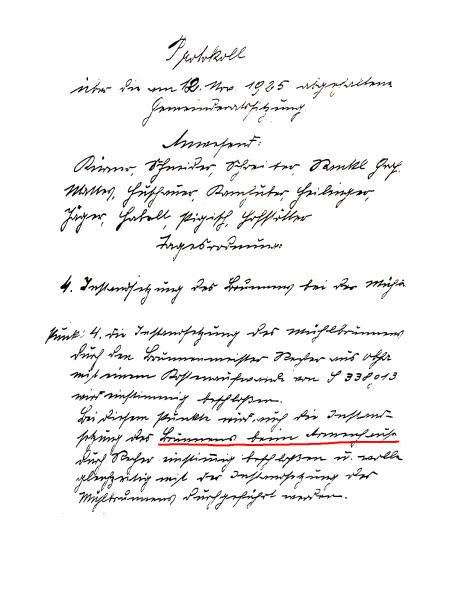 Protokoll
über die am 12. Nov. 1925 abgehaltene
Gemeinderatssitzung
Anwesend:
Schneider, Schreiter
Mattes, Heilinger,
Jäger, Hofstätter
Tagesordnung:
4. Instandsetzung des Brunnens bei der
Punkt: 4. die Instandsetzung des Mühlbrunnens
durch den Brunnenmeister aus
mit einem Kostenaufwande von S
wird einstimmig beschloßen.
Bei diesem Punkte wird auch die Instand-
setzung des Brunnens beim Armenhause
durch einstimmig beschloßen u. wolle
gleichzeitig mit der Instandsetzung des
Mühlbrunnens durchgeführt werden.